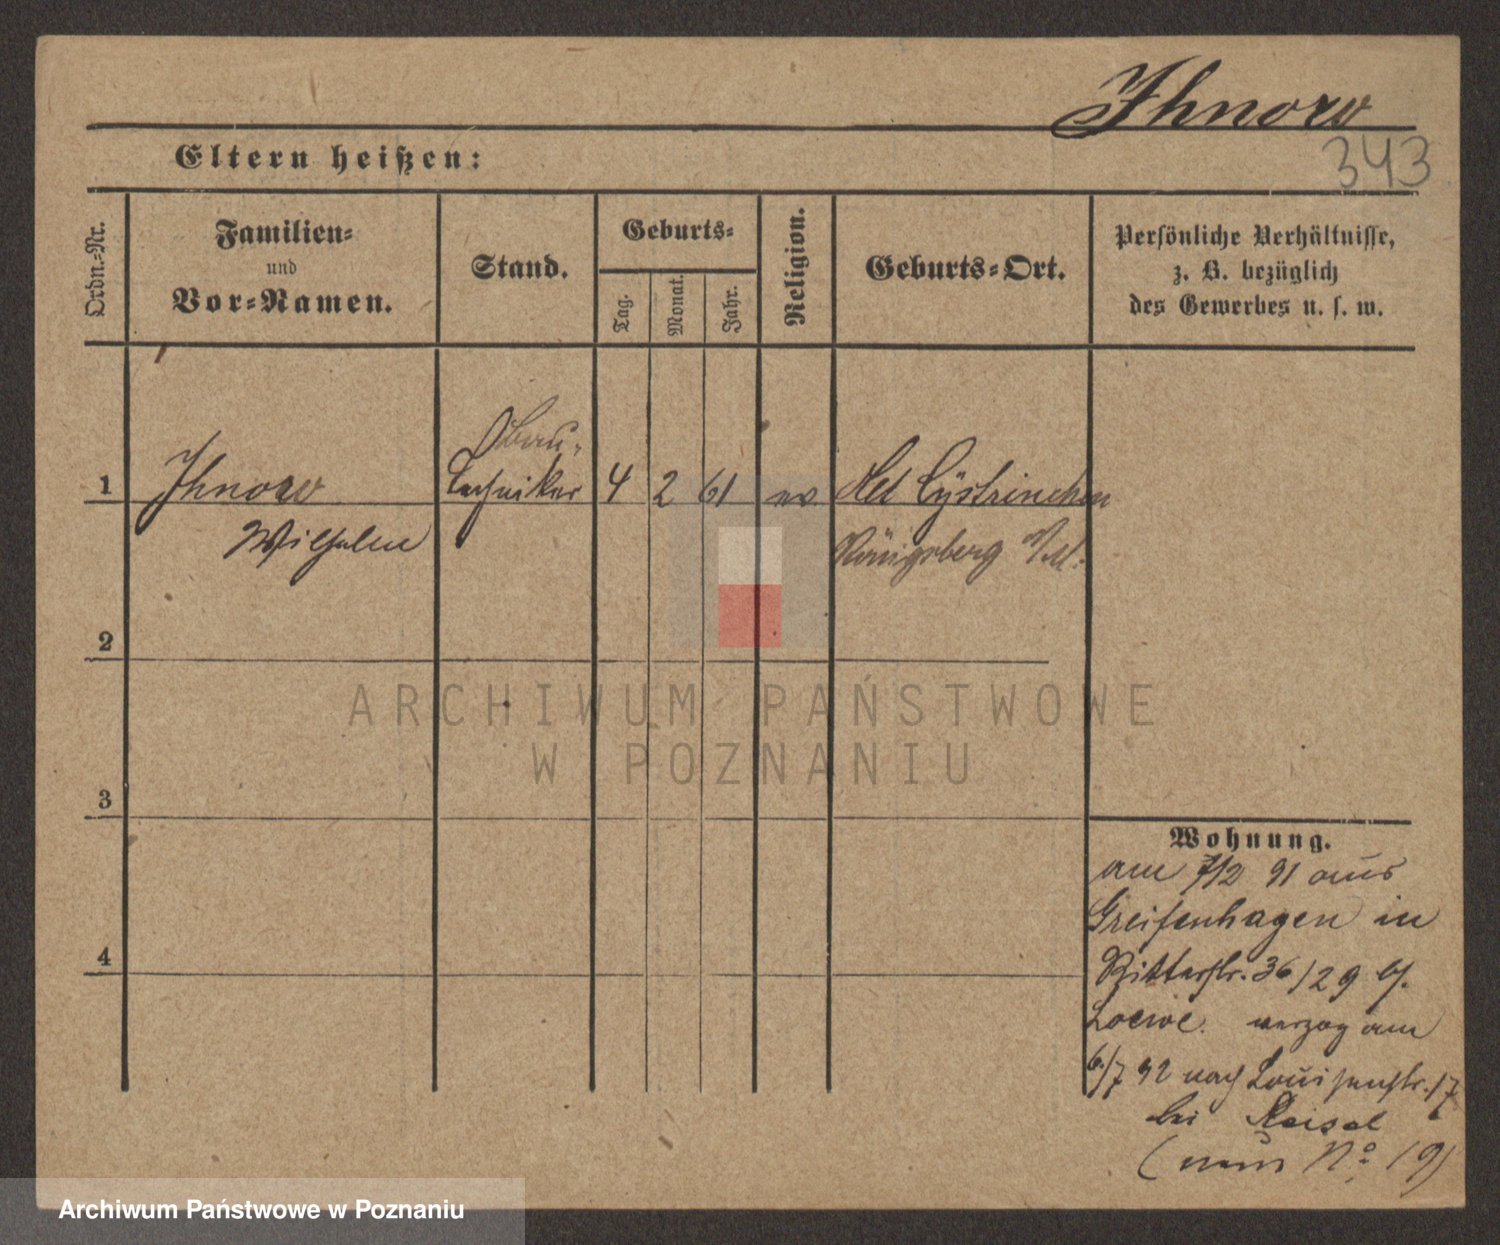 Ihnow
343
Eltern heißen:
Ordn.-Nr.
Familien-
und
Vor-Namen.
Stand.
Geburts-
Tag.
Monat.
Jahr.
Religion.
Geburts-Ort.
Persönliche Verhältnisse,
z. B. bezüglich
des Gewerbes u. s. w.
1
Ihnow
Wilhelm
Bau-
Techniker
4
2
61
ev.
Königsberg N/M.
2
3
4
Wohnung.
am 7/2 91 aus
Greifenhagen in
Ritterstr. 36/29 b/.
Loewe. verzog am
6/7 92 nach Louisenstr. 17
bei Reisel
(neu No 19)
ARCHIWUM PAŃSTWOWE
W POZNANIU
Archiwum Państwowe w Poznaniu